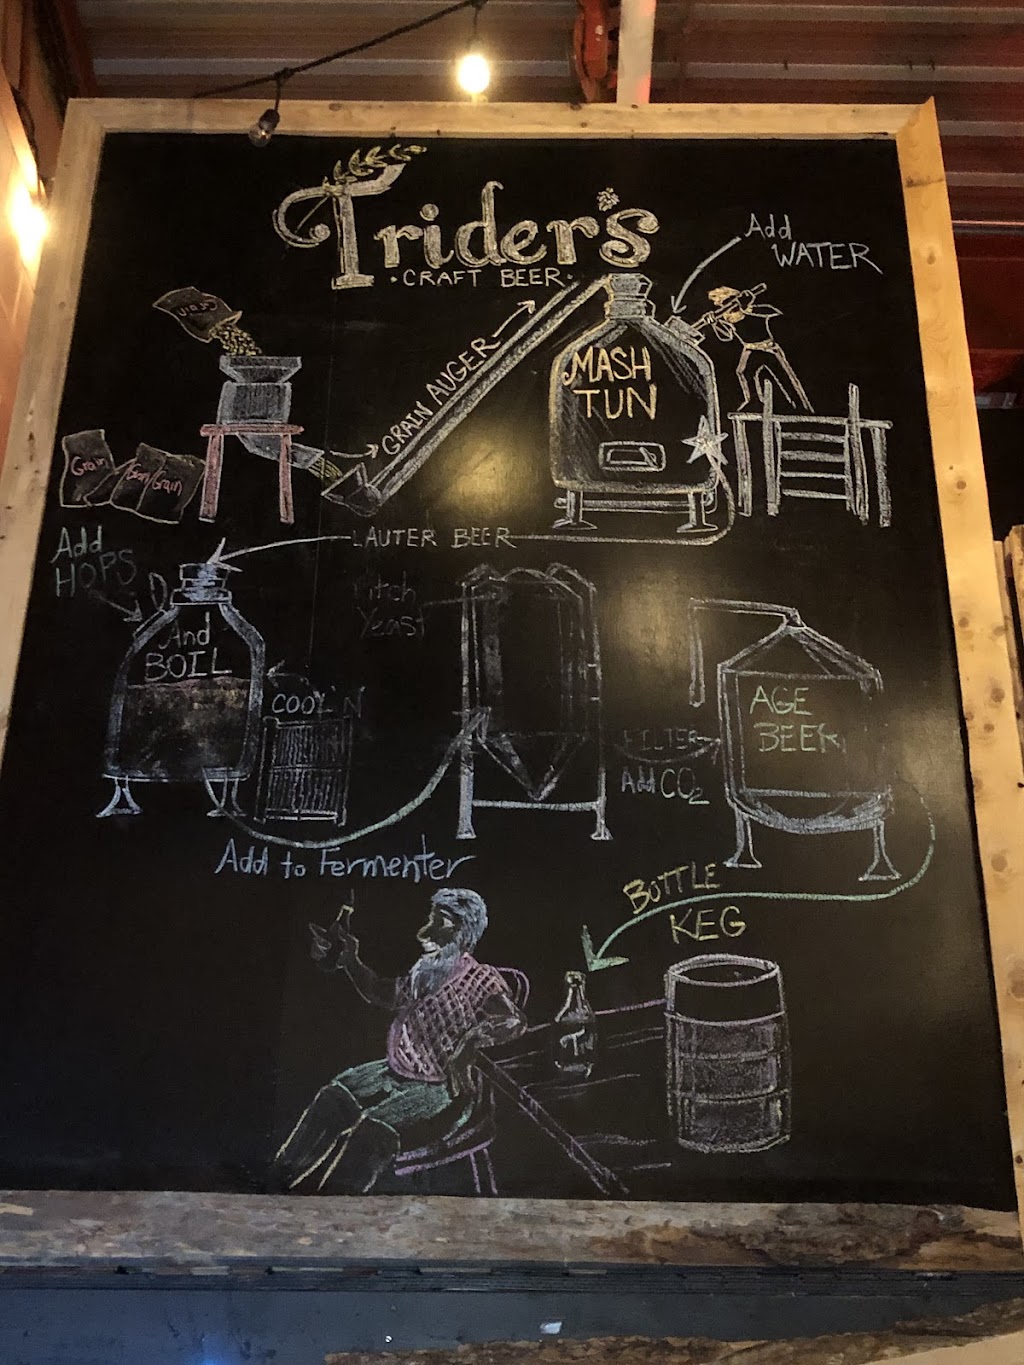 Trider's
· CRAFT BEER ·
Add
WATER
Grain
GRAIN AUGER
MASH
TUN
Grain
Grain
Grain
LAUTER BEER
Add
HOPS
And
BOIL
Pitch
Yeast
COOL'N
AGE
BEER
FILTER
Add CO2
Add to Fermenter
BOTTLE
KEG
T